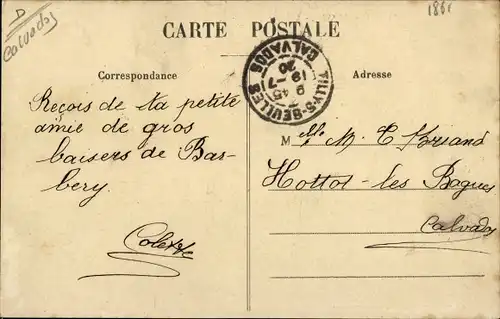 D
Calvados
1861
CARTE POSTALE
TILLY-S-SEULLES
9 45
19 -7
20
CALVADOS
Correspondance
Adresse
Reçois de ta petite
amie de gros
baisers de Bas-
bery.
Colette
Melle M. T Briand
Hottot-les Bagues
Calvados